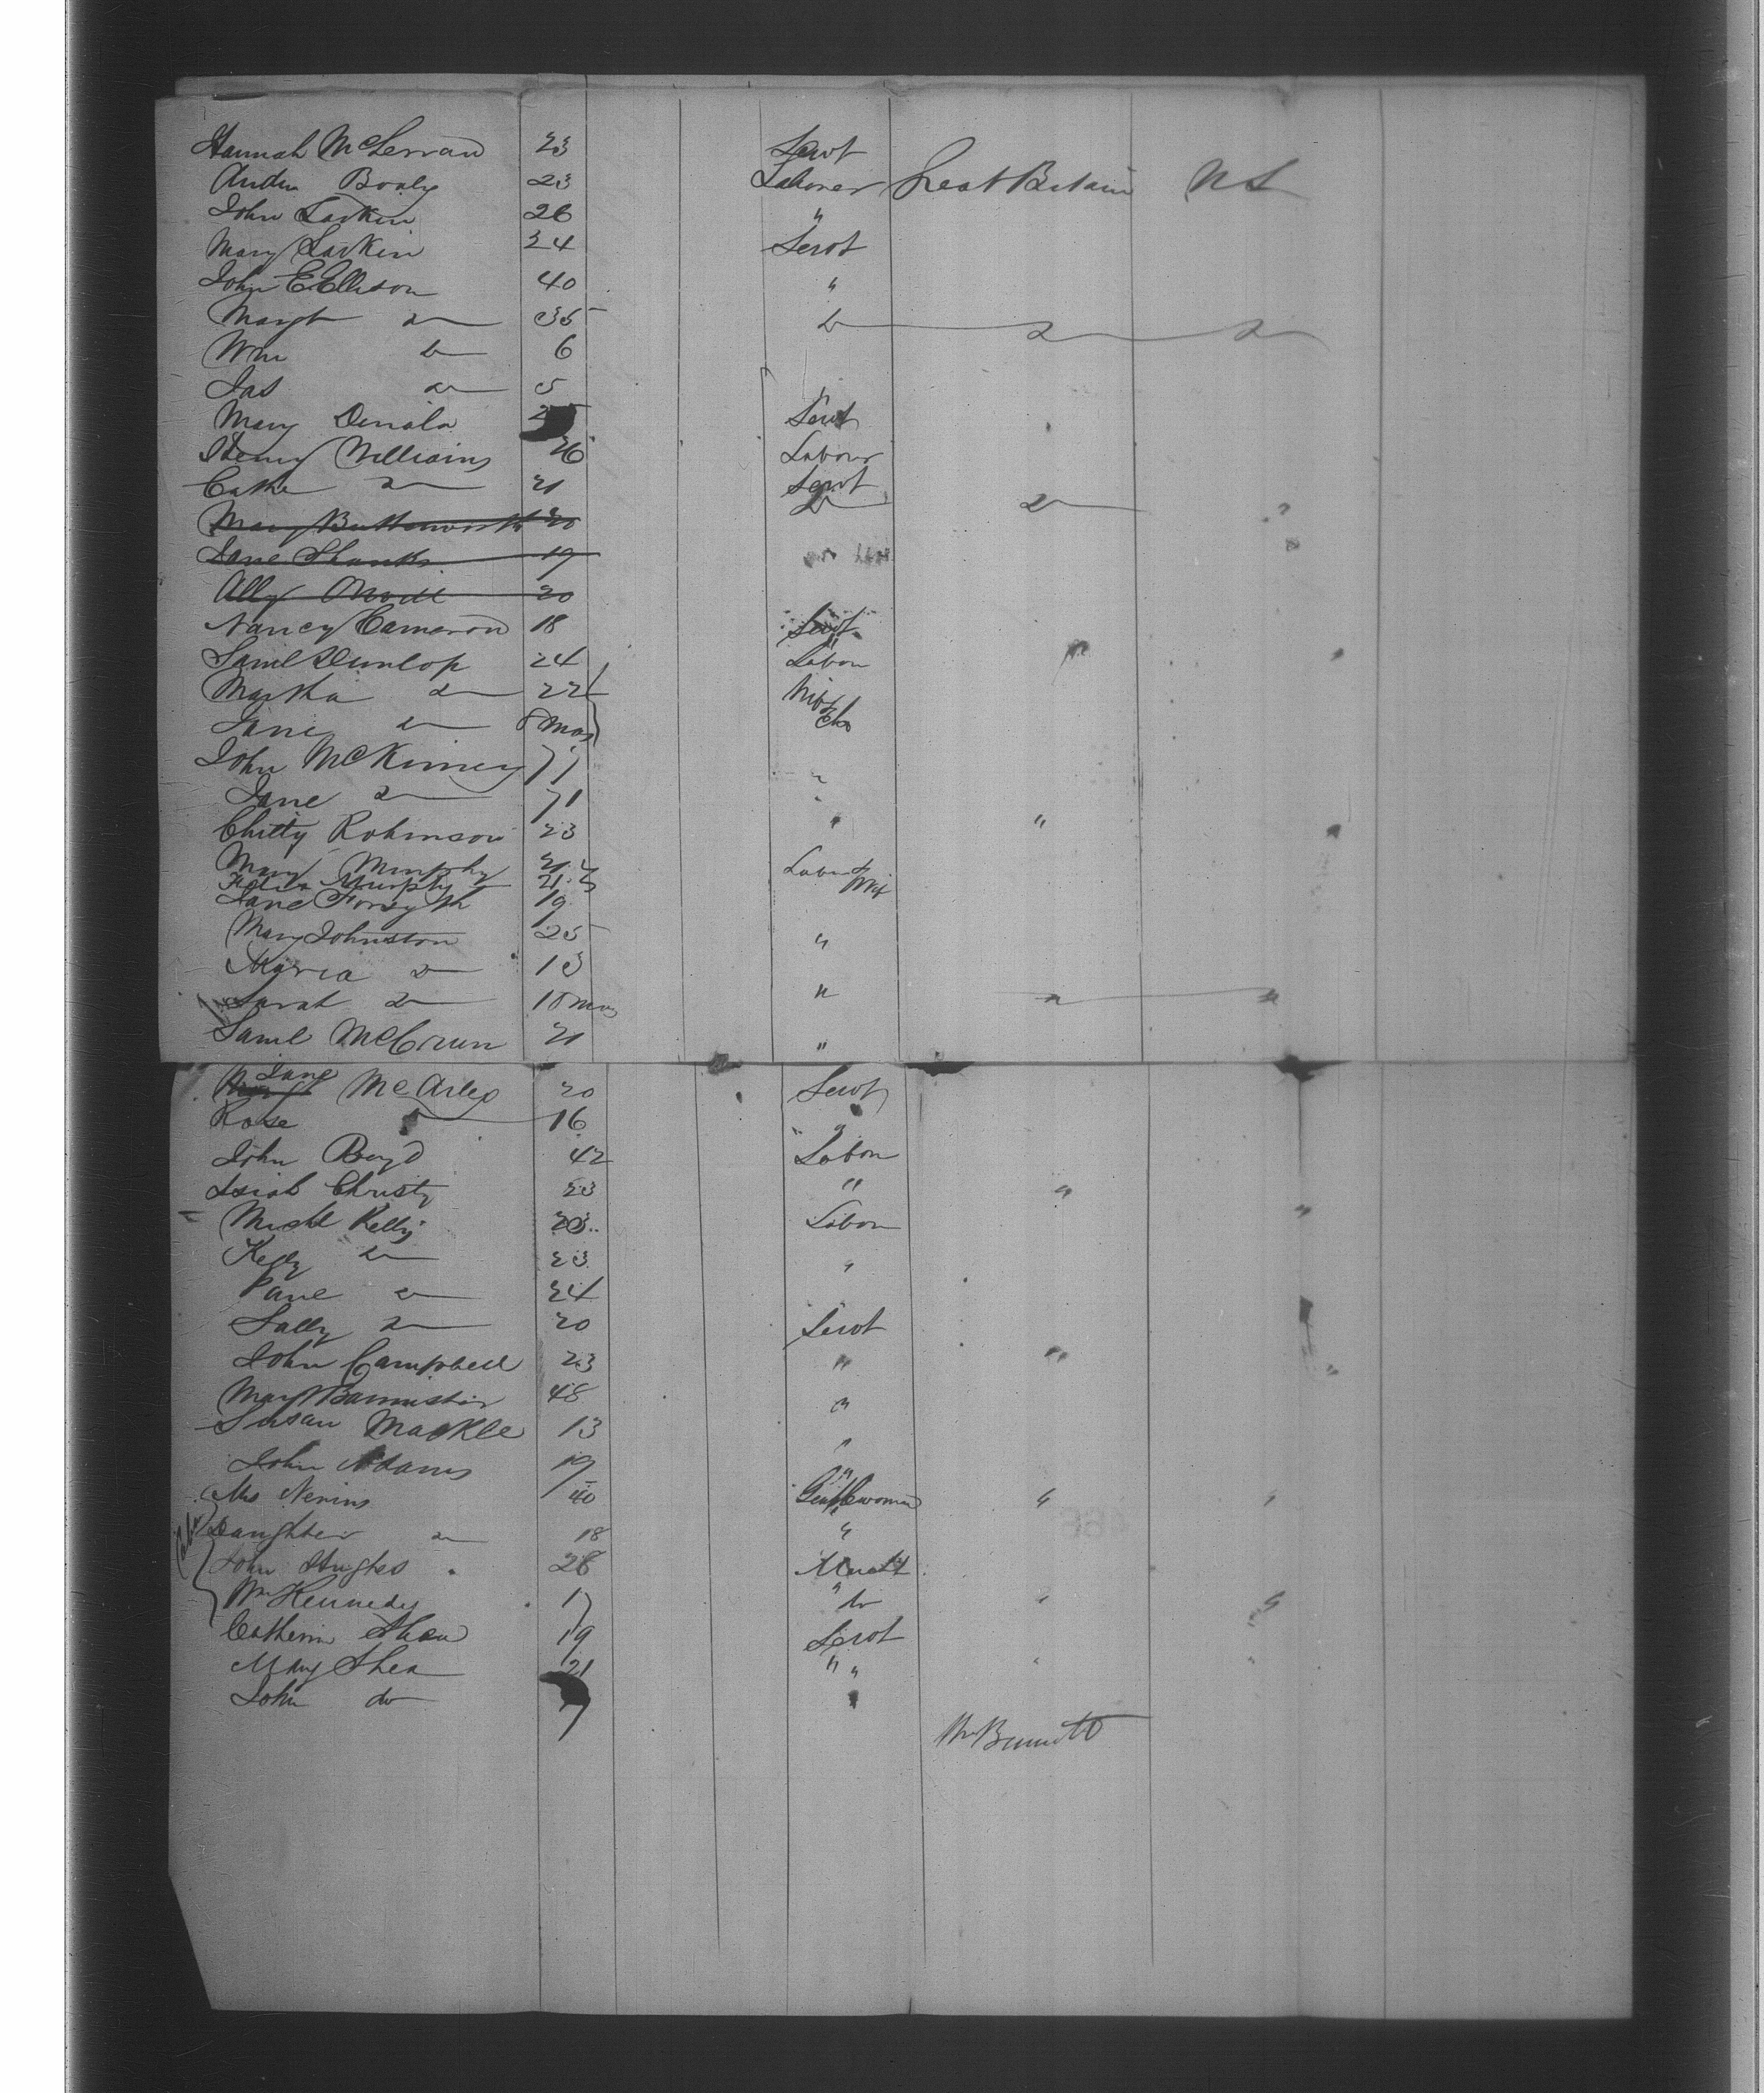 Hannah McLerran 23 Servt
Andw Boaly 23 Laborer Great Britain US
John Larkin 26 "
Mary Larkin 24 Servt
John E Ellison 40 "
Margt do 35 do do do
Wm do 6
Jas do 5
Mary 25 Servt
Henry Williams 26 Labour
Cathe do 21 Servt
Mary Butterworth 20 do do
Jane Shanks 19
Ally ONeill 20
Nancy Cameron 18 Servt
Saml Dunlop 24 Labou
Martha do 22 Wife
Jane do 8 mos Cho
John McKinney 71 "
Jane do 71 "
Chitty Robinson 23 " "
Mary Murphy 21 Labou &
Murphy 21 Wife
Jane Forsyth 19
Mary Johnston 25 "
Maria do 13
Sarah do 10 mos " " "
Saml McCrum 21 "
Jane
McArleo 20 Servt
Rose do 16 "
John Boyd 42 Labou
Isiah Christy 23 " "
Michl Kelly 23 Labou "
Kelly do 23 "
do 24
Sally do 20 Servt
John Campbell 23 " " "
Mary Bannister 48 "
Susan Mackle 13 "
John Adams 19 "
Mrs Nevins 40 Gentlewoman " "
Daughter do 18 "
John Hughes 28
Wm Kennedy 17 do " "
Catherin Shea 19 Servt
Mary Shea 21 " " "
John do 7 "
Wm Bennett